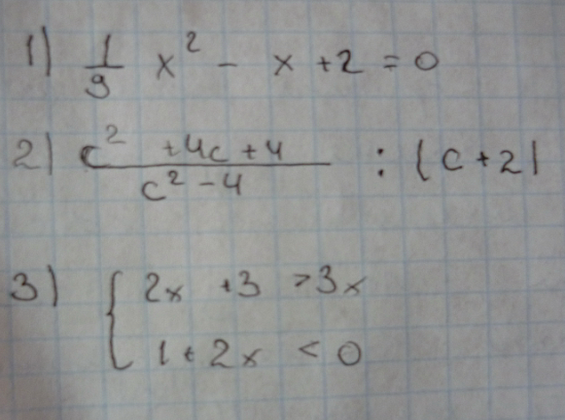 1) 1/9 x² - x + 2 = 0
2) c² + 4c + 4 / c² - 4 : (c + 2)
3) { 2x + 3 > 3x
1 + 2x < 0